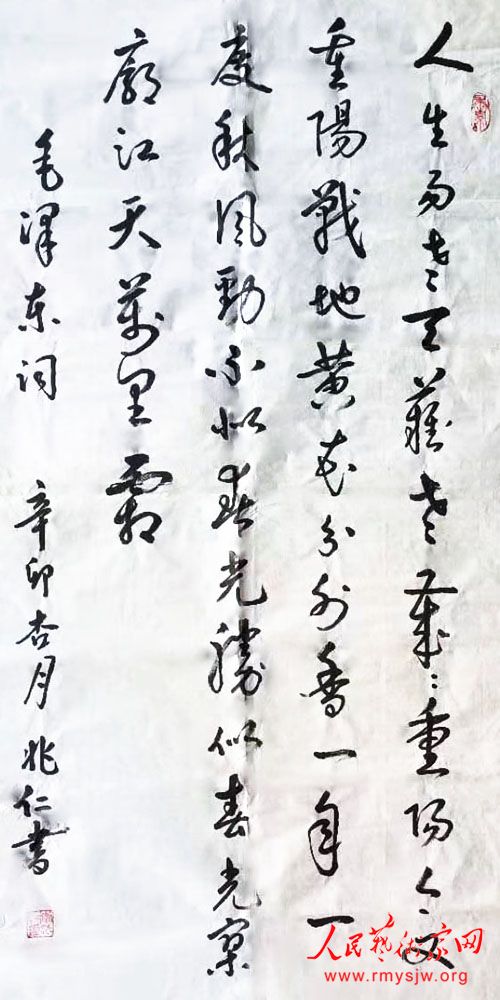 人生易老天難老歲々重陽今又
重陽戰地黃花分外香一年一
度秋風勁不似春光勝似春光寥
廓江天萬里霜
毛澤東詞 辛卯杏月 兆仁書
人民藝術家网
www.rmysjw.org